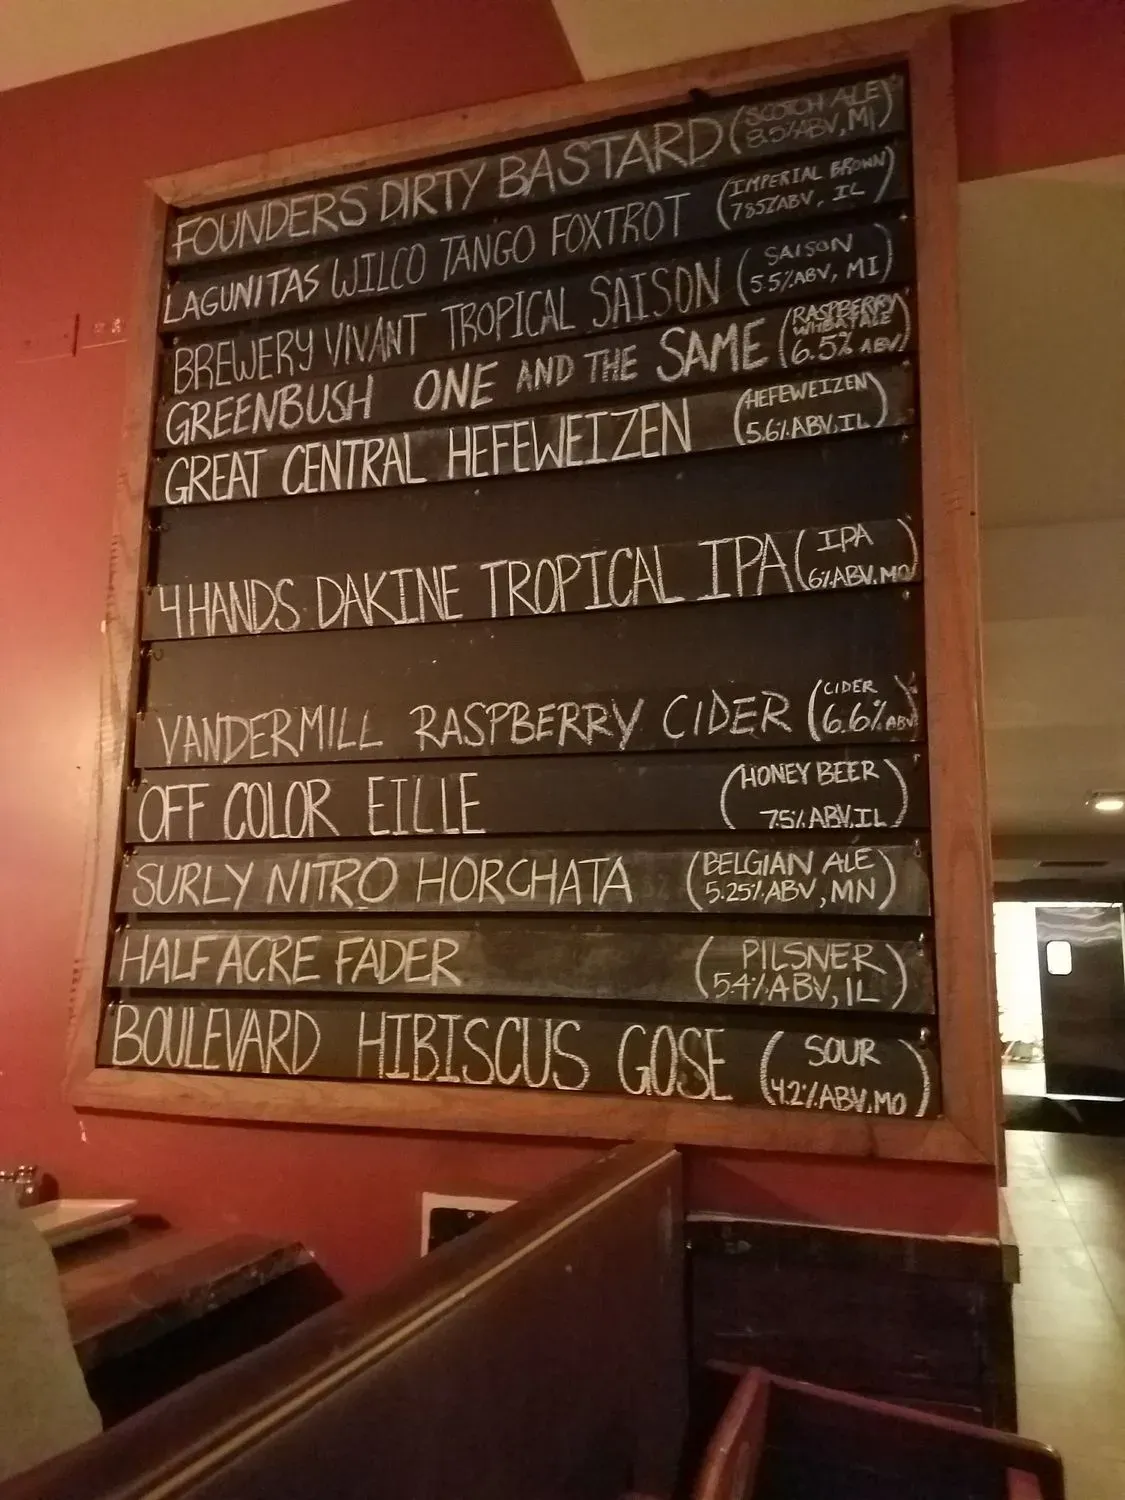 FOUNDERS DIRTY BASTARD (SCOTCH ALE
8.5%ABV, MI)
LAGUNITAS WILCO TANGO FOXTROT (IMPERIAL BROWN)
7.85%ABV, IL
BREWERY VIVANT TROPICAL SAISON (SAISON
5.5%ABV, MI)
GREENBUSH ONE AND THE SAME (RASPBERRY
WHEAT ALE
6.5% ABV)
GREAT CENTRAL HEFEWEIZEN (HEFEWEIZEN)
5.6%ABV, IL
4 HANDS DAKINE TROPICAL IPA (IPA
6%ABV, MO)
VANDERMILL RASPBERRY CIDER (CIDER
6.6% ABV)
OFF COLOR EILLE (HONEY BEER
7.5% ABV, IL)
SURLY NITRO HORCHATA (BELGIAN ALE
5.25% ABV, MN)
HALF ACRE FADER (PILSNER
5.4% ABV, IL)
BOULEVARD HIBISCUS GOSE (SOUR
4.2% ABV, MO)